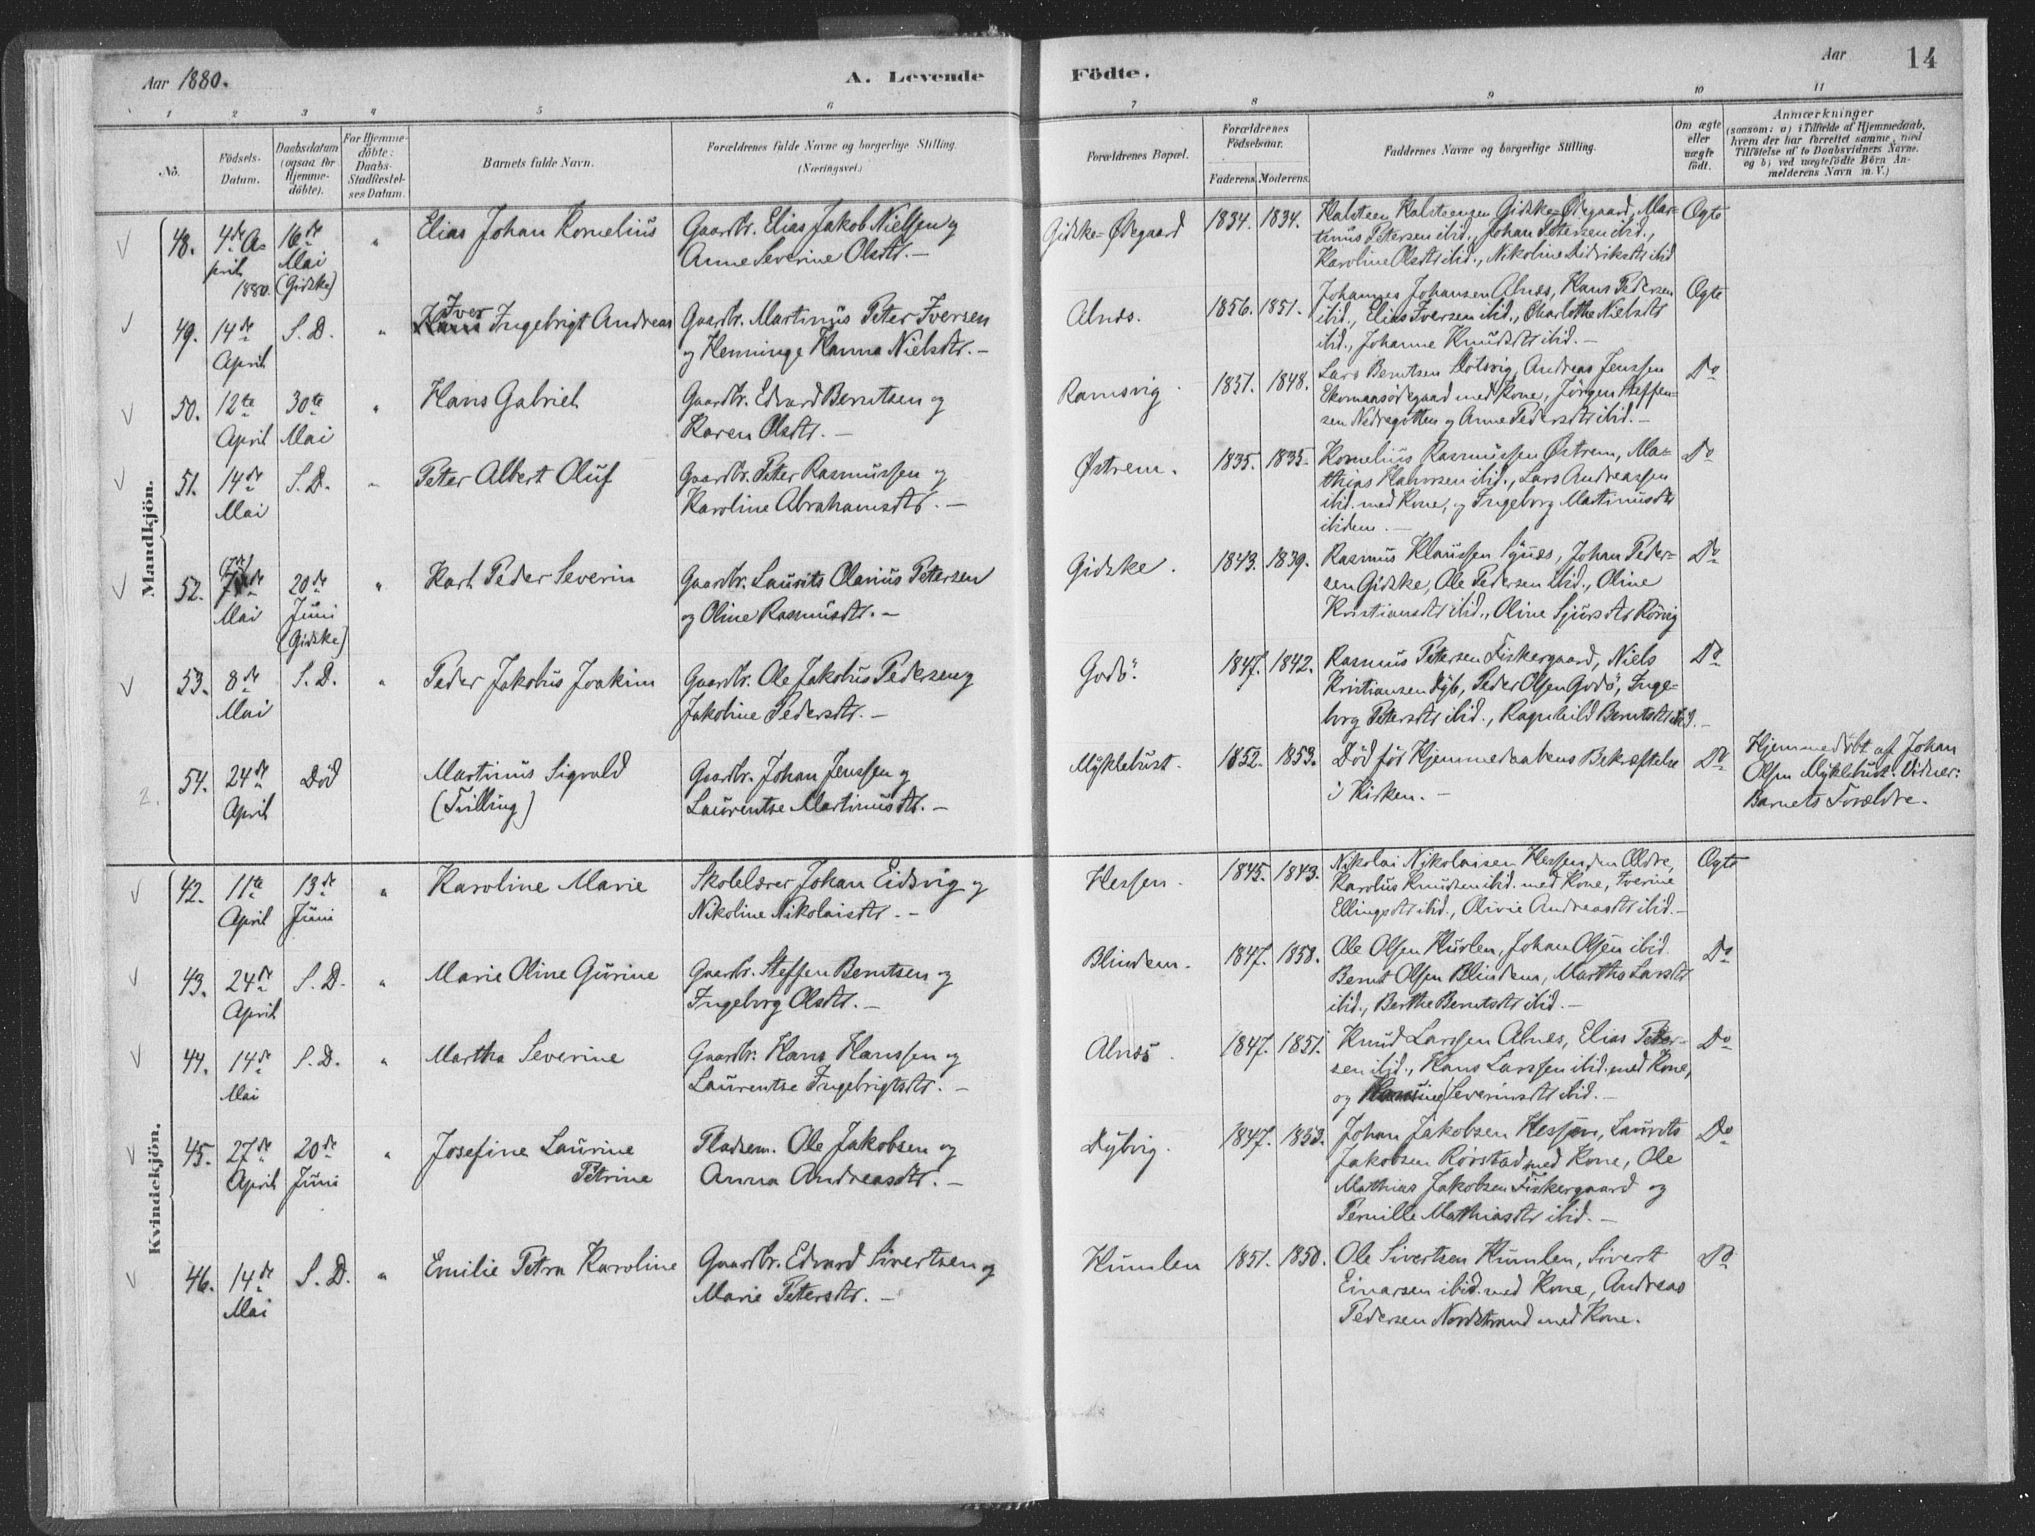 Aar 1880.
A. Levende
Födte.
Aar
14
1 2 3 4 5 6 7 8 9 10 11
No.
Födsels-Datum.
Daabsdatum (ogsaa for Hjemmedöbte).
For Hjemmedöbte: Daabs-Stadfæstelses Datum.
Barnets fulde Navn.
Forældrenes fulde Navne og borgerlige Stilling. (Næringsvei.)
Forældrenes Bopæl.
Forældrenes Födselsaar.
Faderens. Moderens.
Faddernes Navne og borgerlige Stilling.
Om ægte eller uægte födt.
Anmærkninger
(saasom: a) i Tilfælde af Hjemmedaab, hvem der har forrettet samme, med Tilföielse af to Daabsvidners Navne. og b) ved uægtefödte Börn Anmelderens Navn m. V.)
Mandkjön.
48. 4de April 1880. 16de Mai (Gidske) " Elias Johan Kornelius
Gaardbr. Elias Jakob Nielsen og
Anne Severine Olsdtr. —
Gidske-Ødegaard 1834. 1834.
Halsteen Halsteensen Gidske-Ødegaard, Mar-
tinus Petersen ibid., Johan Petersen ibid.,
Karoline Olsdtr ibid., Nikoline Didriksdtr ibid
Ægte
49. 14de April S. D. " Iver Ingebrigt Andreas
Gaardbr. Martinus Peter Iversen
og Henninge Hanna Nielsdtr. —
Alnæs. 1856. 1851.
Johannes Johansen Alnæs, Hans Pedersen
ibid., Elias Iversen ibid., Charlothe Nielsdtr
ibid., Johanne Knudsdtr ibid. —
Ægte
50. 12te April 30te Mai " Hans Gabriel
Gaardbr. Edvard Berntsen og
Karen Olsdtr. —
Ramsvig. 1851. 1848.
Lars Berntsen Slotsvig, Andreas Jenssen
Ekornaasödegaard med Kone, Jörgen Steffen-
sen Nedregotten og Anne Pedersdtr ibid. —
Do
51. 14de Mai S. D. " Peter Albert Oluf
Gaardbr. Peter Rasmussen og
Karoline Abrahamsdtr. —
Østrem. 1835. 1835.
Kornelius Rasmussen Østrem, Ma-
thias Halvorsen ibid., Lars Andreassen
ibid. med Kone, og Ingeborg Martinusdtr
ibidem. —
Do
52. Mai 20de Juni (Gidske) " Karl Peder Severin
Gaardbr. Laurits Olarius Petersen
og Oline Rasmusdtr. —
Gidske. 1843. 1839.
Rasmus Klaussen Synæs, Johan Peder-
sen Gidske, Ole Pedersen ibid., Oline
Kristiansdtr ibid., Oline Sjursdtr Rörvig
Do
53. 8de Mai S. D. " Peder Jakobus Joakim
Gaardbr. Ole Jakobus Pedersen og
Jakobine Pedersdtr. —
Godö. 1847. 1842.
Rasmus Petersen Fiskergaard, Niels
Kristiansen Dyb, Peder Olsen Godö, Inge-
borg Petersdtr ibid., Ragnhild Berntsdtr ibid. —
Do
2. 54. 24de April Död Martinus Sigvald
(Tvilling)
Gaardbr. Johan Jenssen og
Laurentse Martinusdtr. —
Myklebust. 1852. 1853.
Död för Hjemmedaabens Bekræftelse
i Kirken. —
Do
Hjemmedöbt af Johan
Olsen Myklebust. Vidner:
Barnets Forældre.
Kvindekjön.
42. 11te April 13de Juni " Karoline Marie
Skolelærer Johan Eidsvig og
Nikoline Nikolaisdtr. —
Hessen. 1845. 1843.
Nikolai Nikolaisen Hessen den Ældre,
Karolus Knudsen ibid. med Kone, Iverine
Ellingsdtr ibid., Olivie Andreasdtr ibid. —
Ægte
43. 24de April S. D. " Marie Oline Gurine
Gaardbr. Steffen Berntsen og
Ingeborg Olsdtr. —
Blindem. 1847. 1858.
Ole Olsen Hurlen, Johan Olsen ibid.
Bernt Olsen Blindem, Martha Larsdtr
ibid., Berthe Berntsdtr ibid. —
Do
44. 14de Mai S. D. " Martha Severine
Gaardbr. Hans Hanssen og
Laurentse Ingebrigtsdtr. —
Alnæs. 1847. 1851.
Knud Larssen Alnes, Elias Peter-
sen ibid., Hans Larssen ibid. med Kone,
og Severinsdtr ibid. —
Do
45. 27de April 20de Juni " Josefine Laurine
Petrine
Pladsem. Ole Jakobsen og
Anna Andreasdtr. —
Dybvig. 1847. 1853.
Johan Jakobsen Hessen, Laurits
Jakobsen Rörstad med Kone, Ole
Mathias Jakobsen Fiskergaard og
Pernille Mathiasdtr ibid. —
Do
46. 14de Mai S. D. " Emilie Petra Karoline
Gaardbr. Edvard Sivertsen og
Marie Petersdtr. —
Humlen 1851. 1850.
Ole Sivertsen Humlen, Sivert
Einarsen ibid. med Kone, Andreas
Pedersen Nordstrand med Kone.
Do